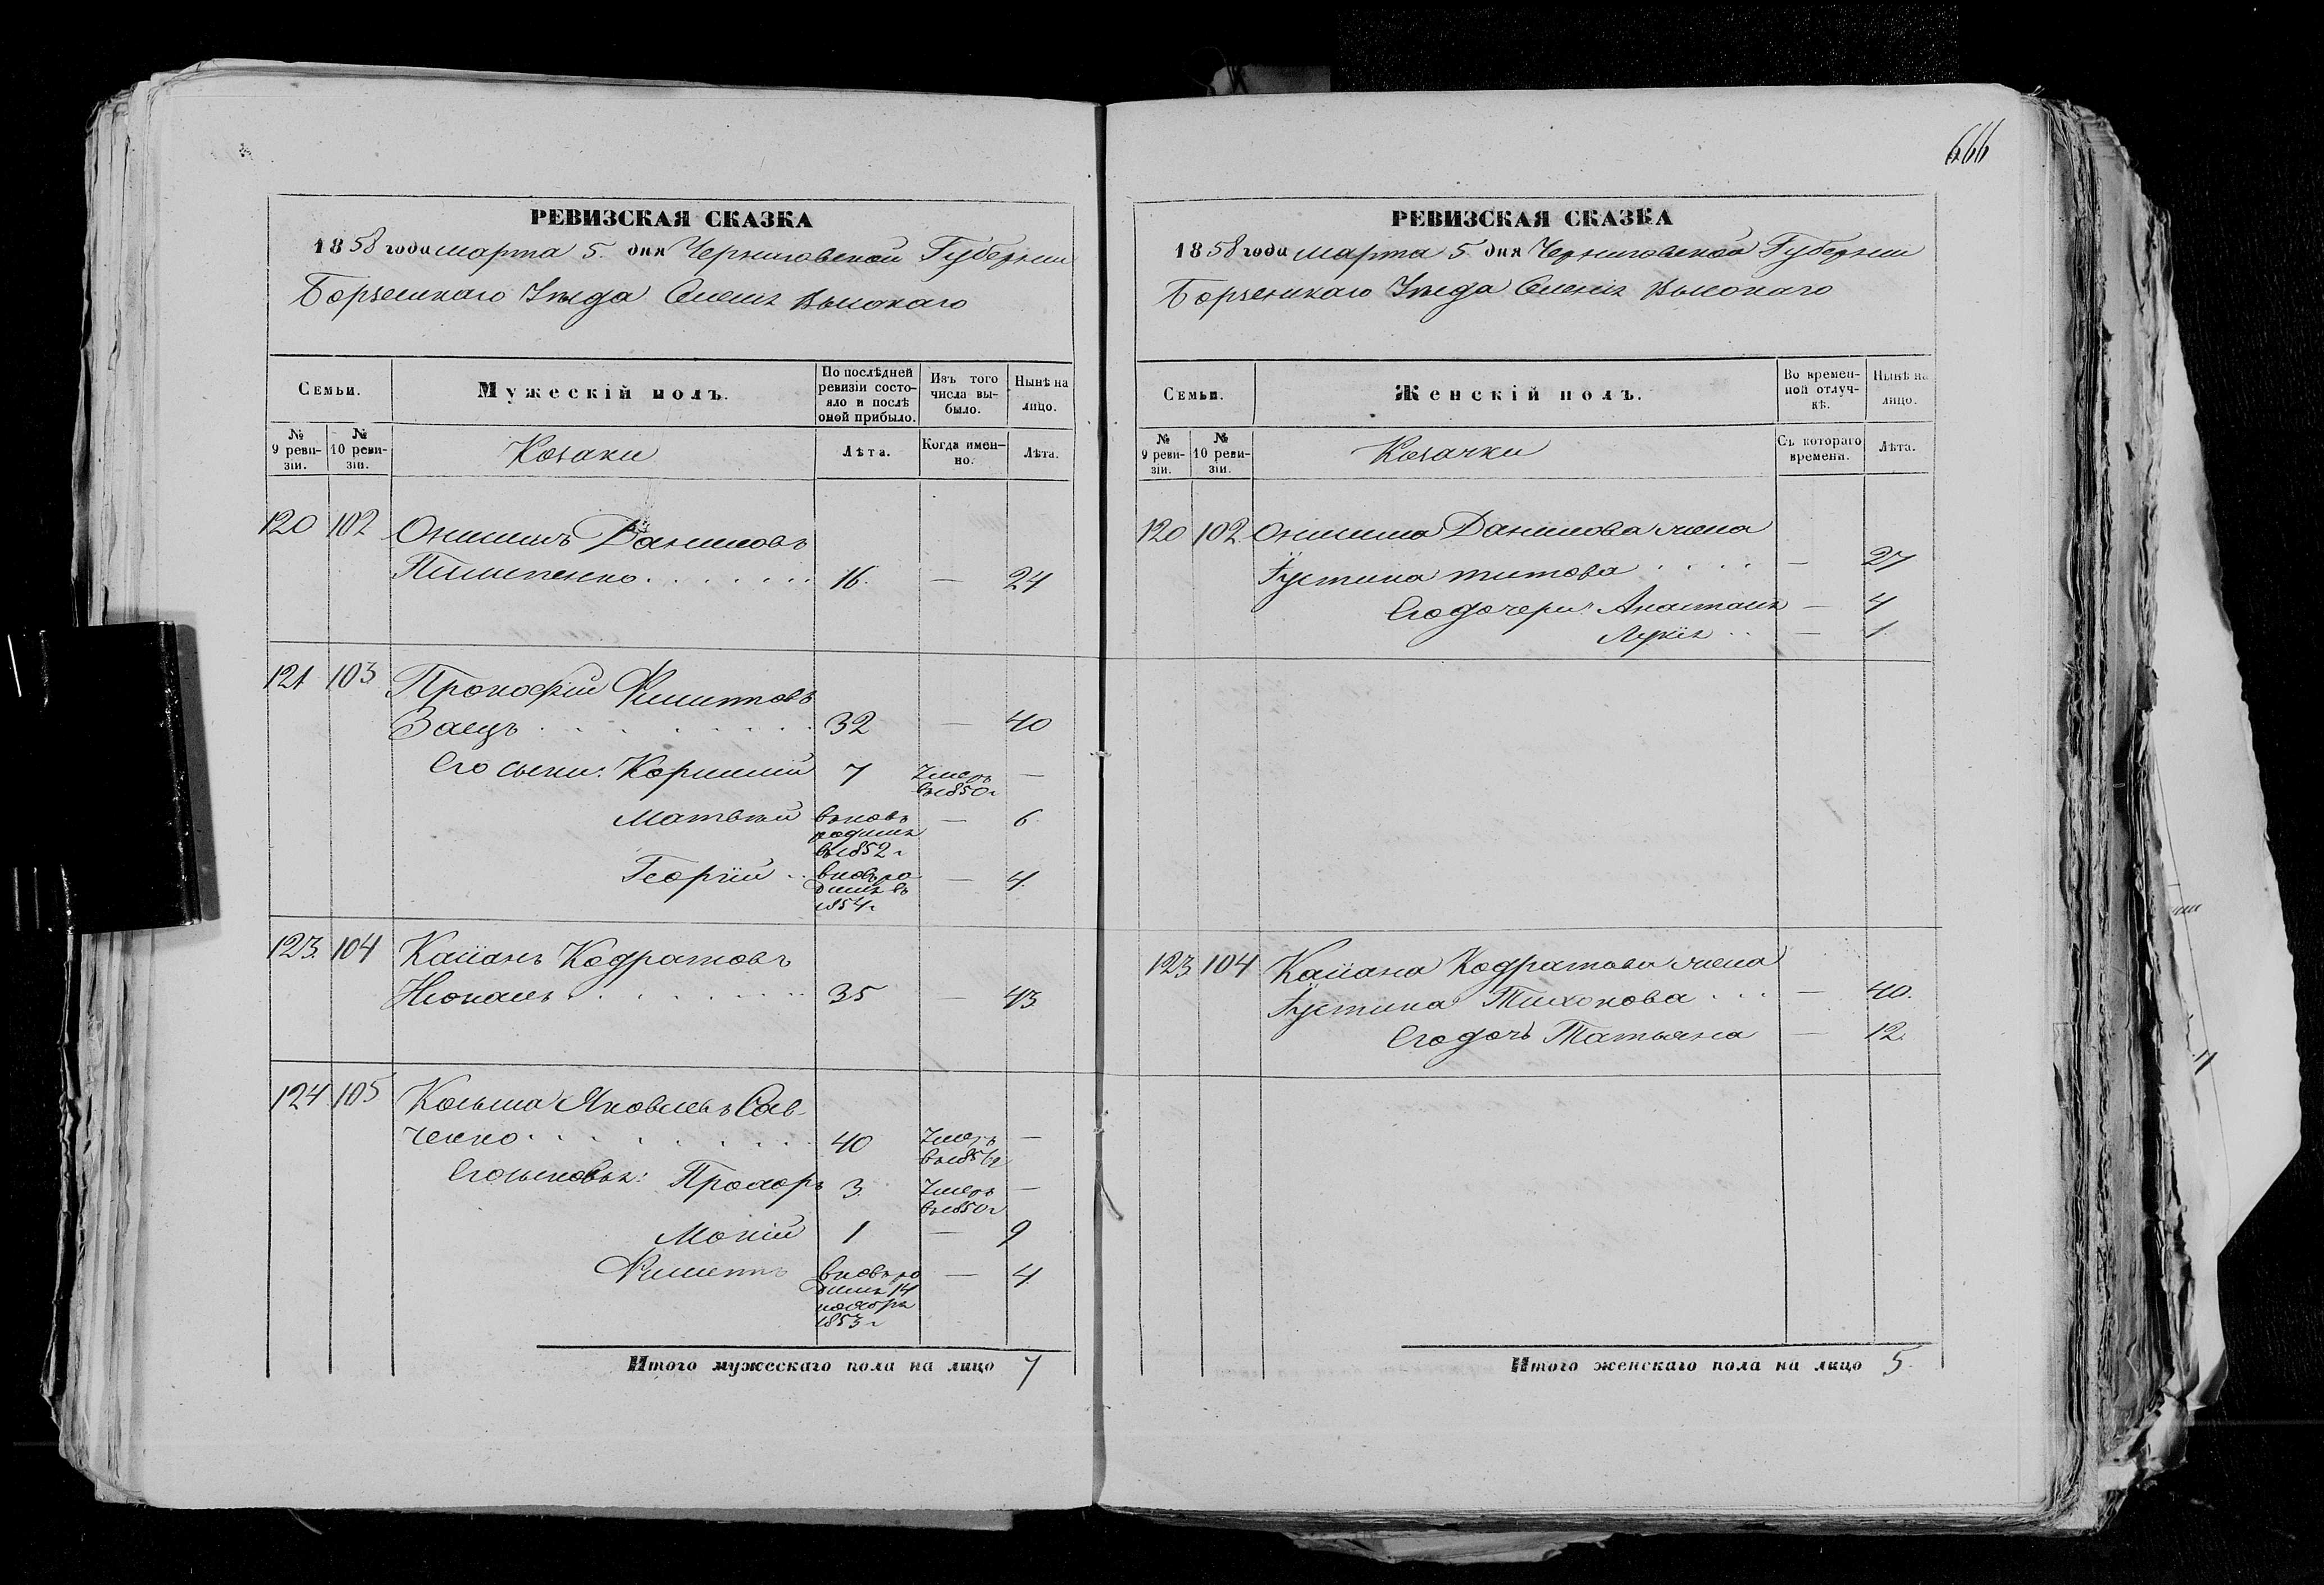 РЕВИЗСКАЯ СКАЗКА
1858 года марта 5. дня Черниговской Губернии
Борзенскаго Уѣзда Селенія Высокаго
Семьи.
Мужескій полъ.
По послѣдней ревизіи состояло и послѣ оной прибыло.
Изъ того числа выбыло.
Нынѣ на лицо.
№ 9 ревизіи.
№ 10 ревизіи.
Козаки
Лѣта.
Когда именно.
Лѣта.
120 102 Онисимъ Даниловъ
Пилипенко 16. — 24
121 103 Прокофій Филиповъ
Заецъ 32 — 40
Его сыны: Корнилій 7 Умеръ —
въ 1850 г
Матвѣй вновь — 6
родился
въ 1852 г
Георгій вновь ро — 4.
дился въ
1854 г
123. 104 Касіанъ Кодратовъ
35 — 43
124 105 Козьма Яковлевъ Сав-
ченко 40 Умеръ —
Его сыновья: Прохоръ 3. Умеръ —
въ 1850 г
Мокій 1 — 9
Филиппъ вновь ро — 4.
дился 14
ноября
1853 г
Итого мужескаго пола на лицо 7
666
РЕВИЗСКАЯ СКАЗКА
1858 года марта 5 дня Черниговской Губернии
Борзенскаго Уѣзда Селенія Высокаго
Семьи.
Женскій полъ.
Во временной отлучкѣ.
Нынѣ на лицо.
№ 9 ревизіи.
№ 10 ревизіи.
Козачки
Съ котораго времени.
Лѣта.
120 102 Онисима Данилова жена
Густина Титова — 27
Его дочери: Анастасія — 4
Лукія — 1.
123 104 Касіана Кодратова жена
Густина Тихонова — 40.
Его дочь Татьяна — 12.
Итого женскаго пола на лицо 5.